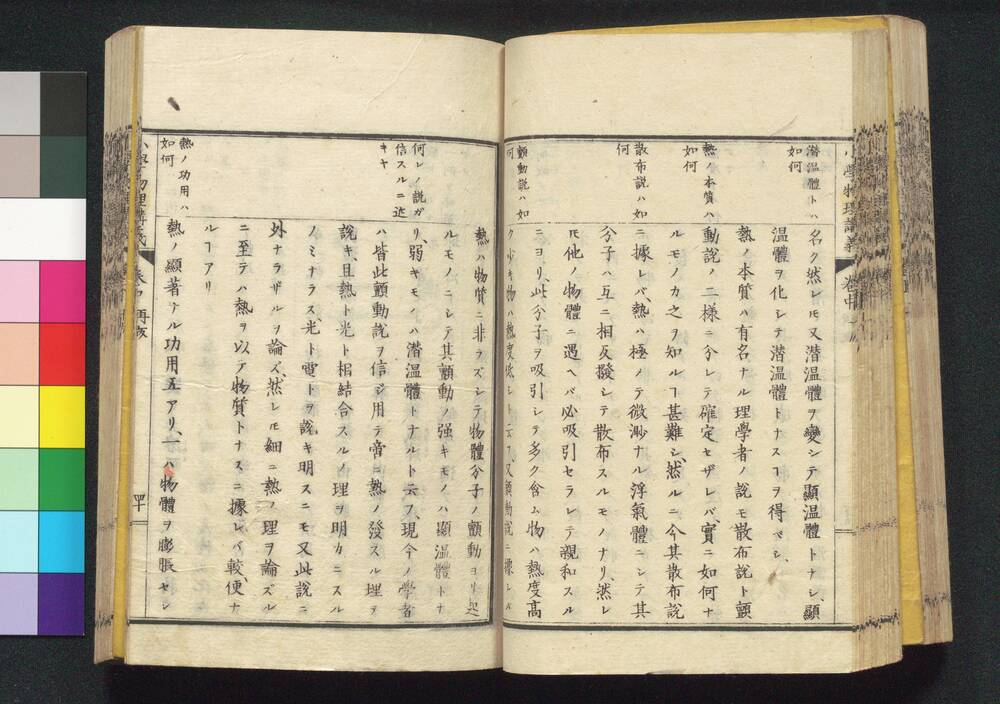 小學物理講義 卷中
潜温體トハ
如何
名ク然レ𪜈又潜温體ヲ變シテ顯温體トナシ、顯
温體ヲ化シテ潜温體トナスヿヲ得ベシ、
熱ノ本質ハ
如何
熱ノ本質ハ有名ナル理學者ノ説モ散布説ト顫
動説ノ二様ニ分レテ確定セザレバ實ニ如何ナ
ルモノカ之ヲ知ルヿ甚難シ、然ルニ今其散布説
散布説ハ如
何
ニ據レバ、熱ハ極メテ微渺ナル浮氣體ニシテ其
分子ハ互ニ相反撥シテ散布スルモノナリ、然レ
𪜈他ノ物體ニ遇ヘバ必吸引セラレテ親和スル
ニヨリ、此分子ヲ吸引シテ多ク含ム物ハ熱度高
顫動説ハ如
何
ク少キ物ハ熱度低シト云フ、又顫動説ニ據レバ
熱ハ物質ニ非ラズシテ物體分子ノ顫動ヨリ起
ルモノニシテ其顫動ノ强キモノハ顯温體トナ
何レノ説ガ
信スルニ近
キヤ
リ、弱キモノハ潜温體トナルト云フ、現今ノ學者
ハ皆此顫動説ヲ信ジ用テ啻ニ熱ノ發スル理ヲ
説キ、且熱ト光ト相結合スルノ理ヲ明カニスル
ノミナラス光ト電トヲ説キ明スニモ又此説ニ
外ナラザルヲ論ズ、然レ𪜈細ニ熱ノ理ヲ論ズル
ニ至テハ熱ヲ以テ物質トナスニ據レバ較、便ナ
ルヿアリ
熱ノ功用ハ
如何
熱ノ顯著ナル功用五アリ、一ハ物體ヲ膨脹セシ
小學物理講義 卷中 再版 四十